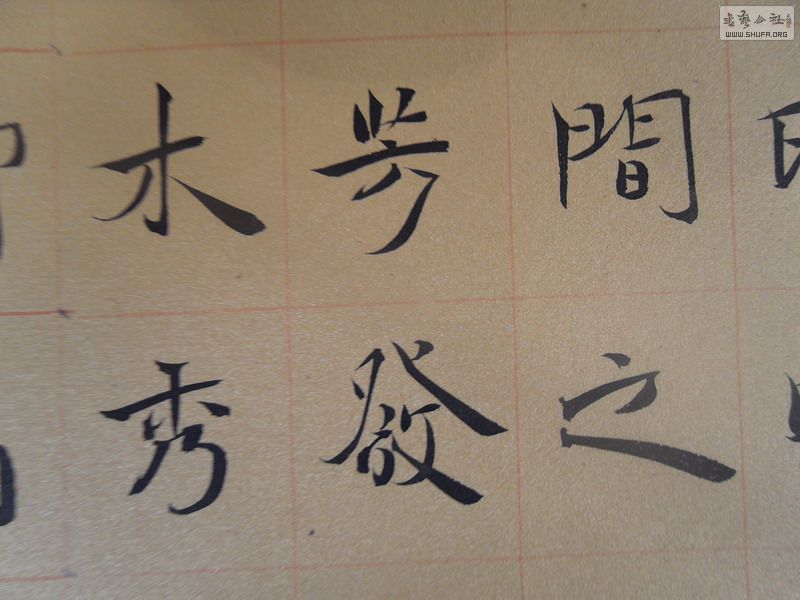 間之
芳發
木秀
書藝公社
WWW.SHUFA.ORG